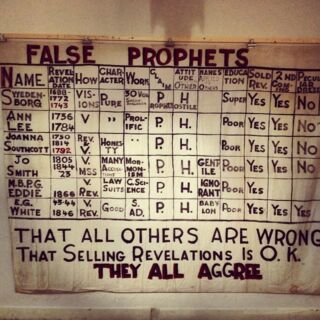 FALSE PROPHETS
NAME REVELATION DATE HOW CHARACTER WORK CLAIM ATTITUDE OTHERS NAMES EDUCATION SOLD REV. 2ND COM. PECULIAR DRESS
SWEDENBORG 1688-1772 1743 VISIONS PURE 30 VOL PROPHET HOSTILE SUPER YES YES NO
ANN LEE 1736 1784 V " PROLIFIC P. H. POOR YES YES NO
JOANNA SOUTHCOTT 1750 1814 1792 REV. & V. HONESTY " P. H. POOR YES YES NO
JO SMITH 1805 1844 '23 V. MSS MANY MORMONISM P. H. GENTILE POOR YES YES NO
M.B.P.G. EDDIE 1866 V. REV. LAW SUITS C. SCIENCE P. H. IGNORANT POOR YES YES
E.G. WHITE 43-44 1846 V. REV. GOOD S. AD. P. H. BABYLON POOR YES YES YES
THAT ALL OTHERS ARE WRONG
THAT SELLING REVELATIONS IS O.K.
THEY ALL AGGREE